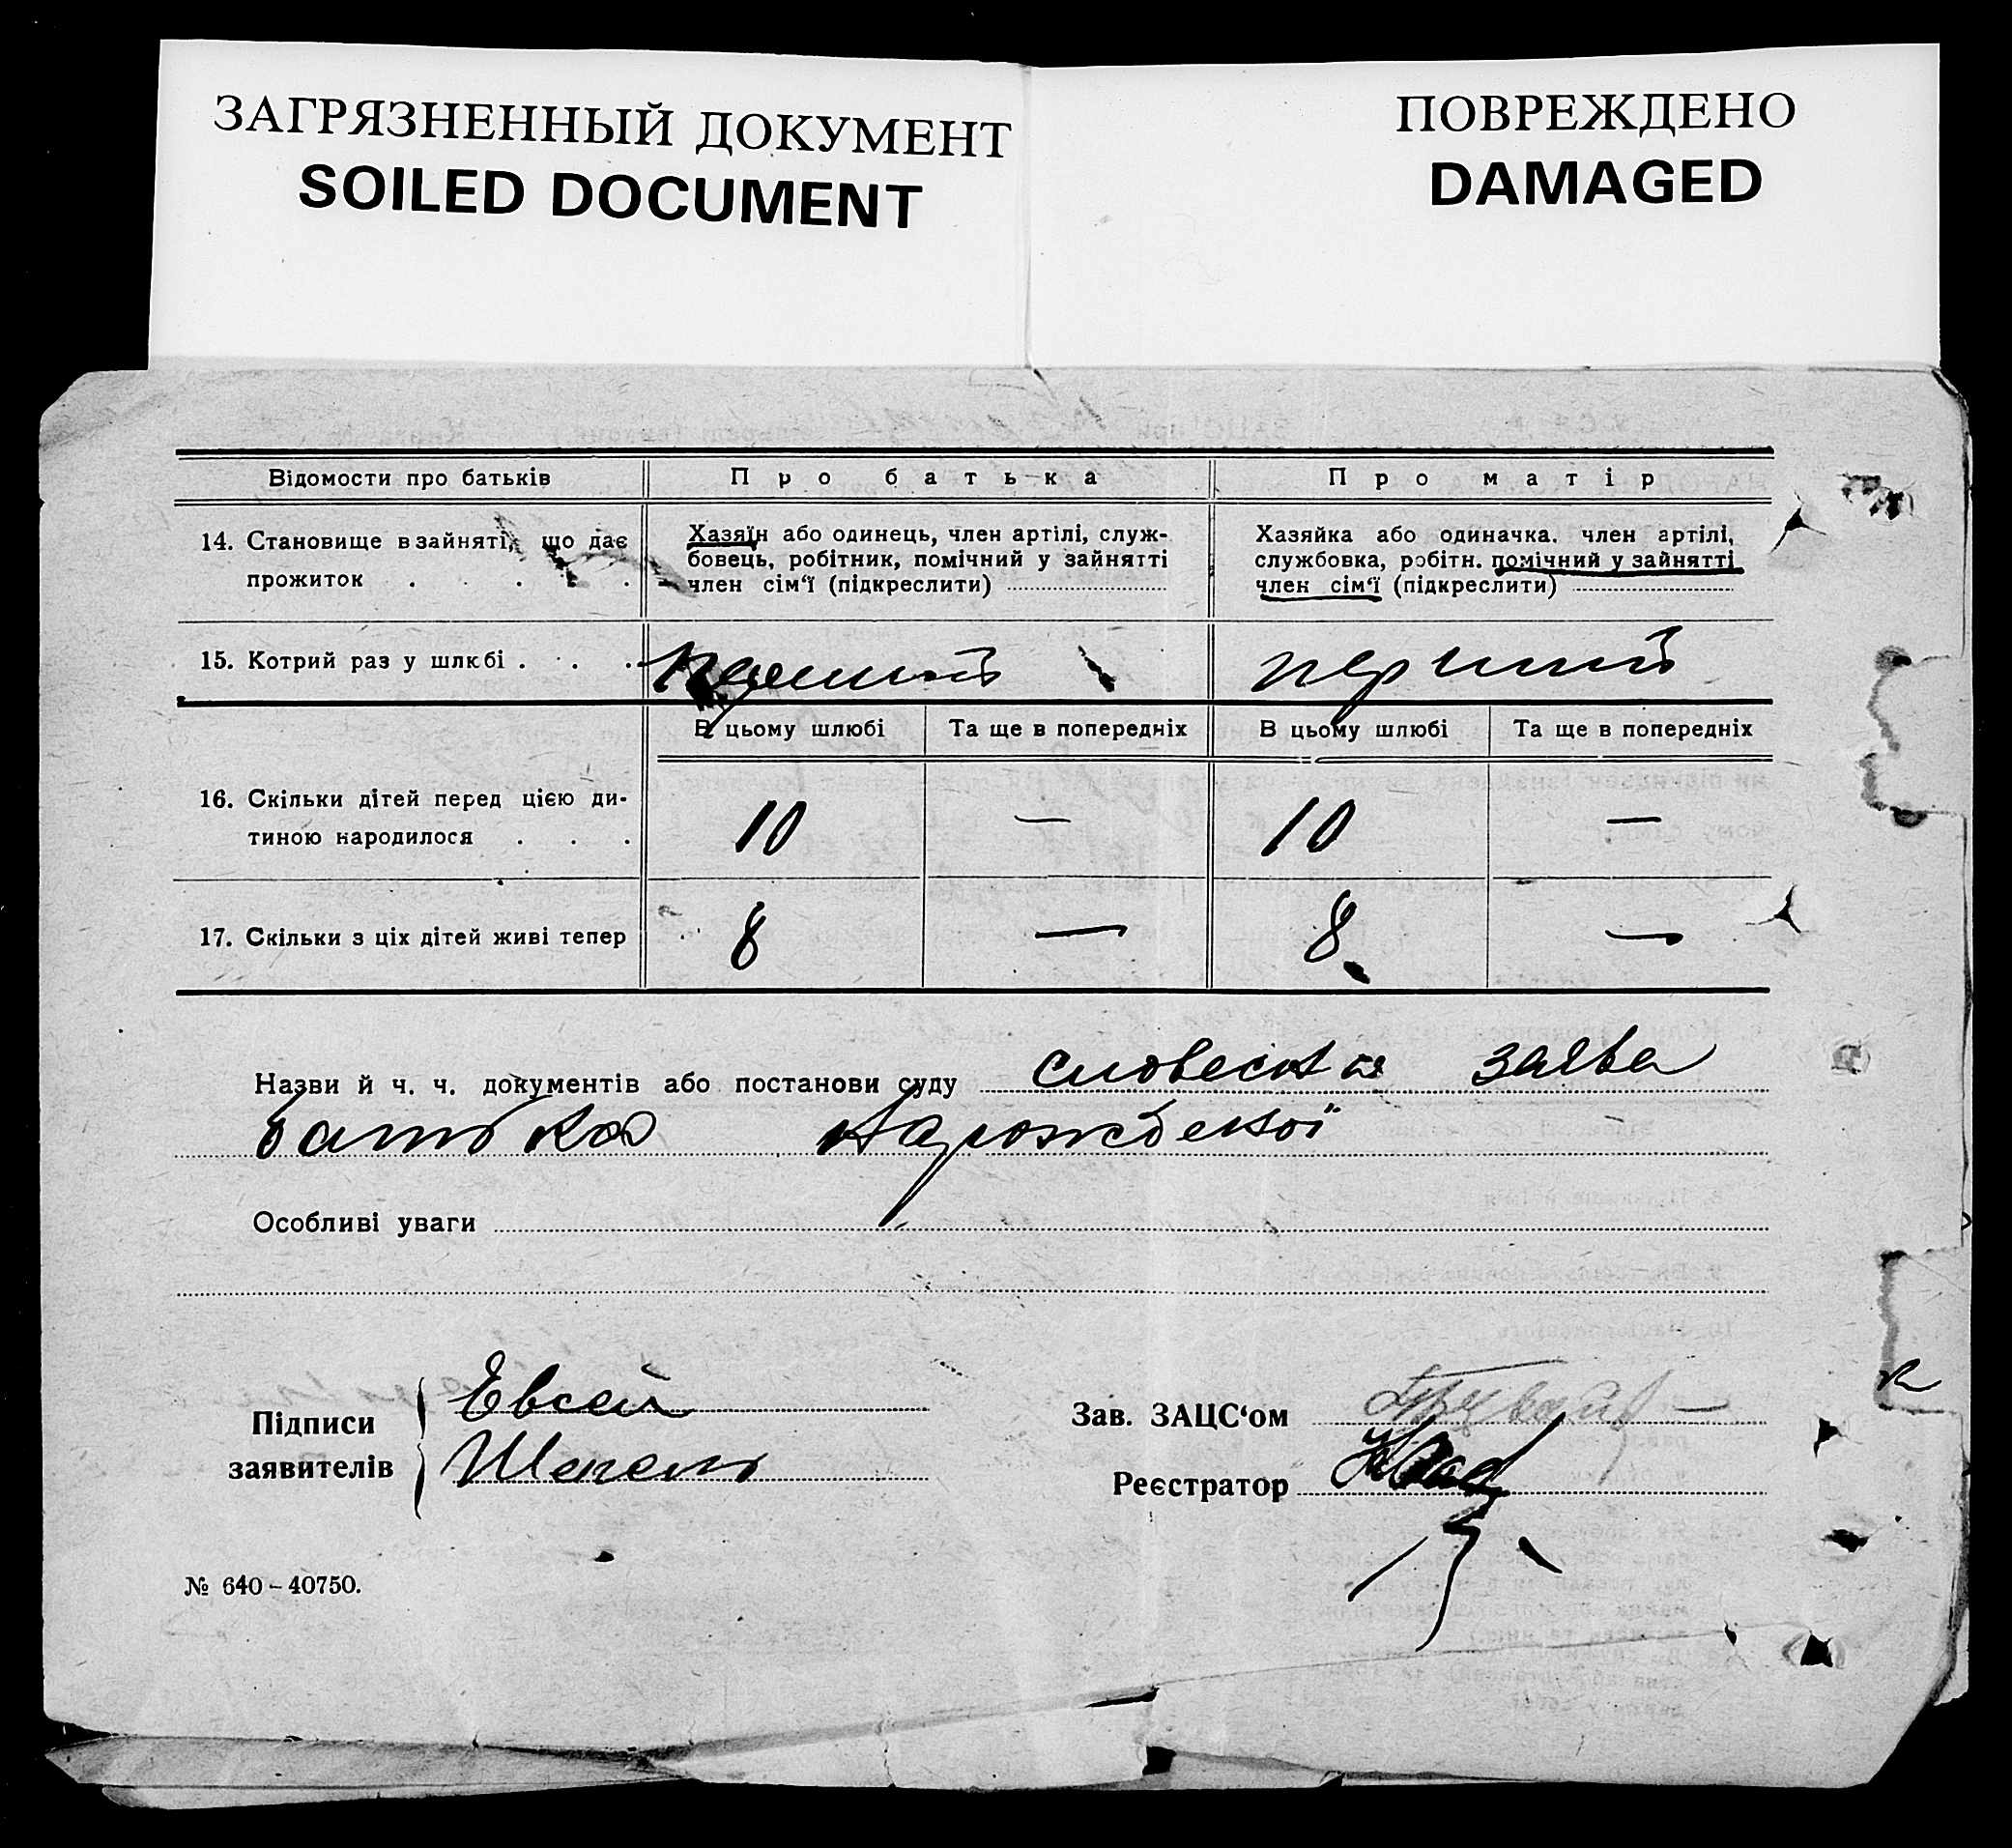 ЗАГРЯЗНЕННЫЙ ДОКУМЕНТ
SOILED DOCUMENT
ПОВРЕЖДЕНО
DAMAGED
Відомости про батьків
Про батька
Про матір
14. Становище в зайняті, що дає
прожиток . . . .
Хазяїн або одинець, член артілі, служ-
бовець, робітник, помічний у зайнятті
член сім‘ї (підкреслити)
Хазяйка або одиначка, член артілі,
службовка, робітн. помічний у зайнятті
член сім‘ї (підкреслити)
15. Котрий раз у шлюбі . . . .
перший
перший
В цьому шлюбі
Та ще в попередніх
В цьому шлюбі
Та ще в попередніх
16. Скільки дітей перед цією ди-
тиною народилося . . .
10
—
10
—
17. Скільки з ціх дітей живі тепер
8
—
8
—
Назви й ч. ч. документів або постанови суду словесна заява
батька нарожденої
Особливі уваги
Підписи
заявителів
Евсей
Шепель
Зав. ЗАЦС‘ом
Реєстратор
№ 640 – 40750.